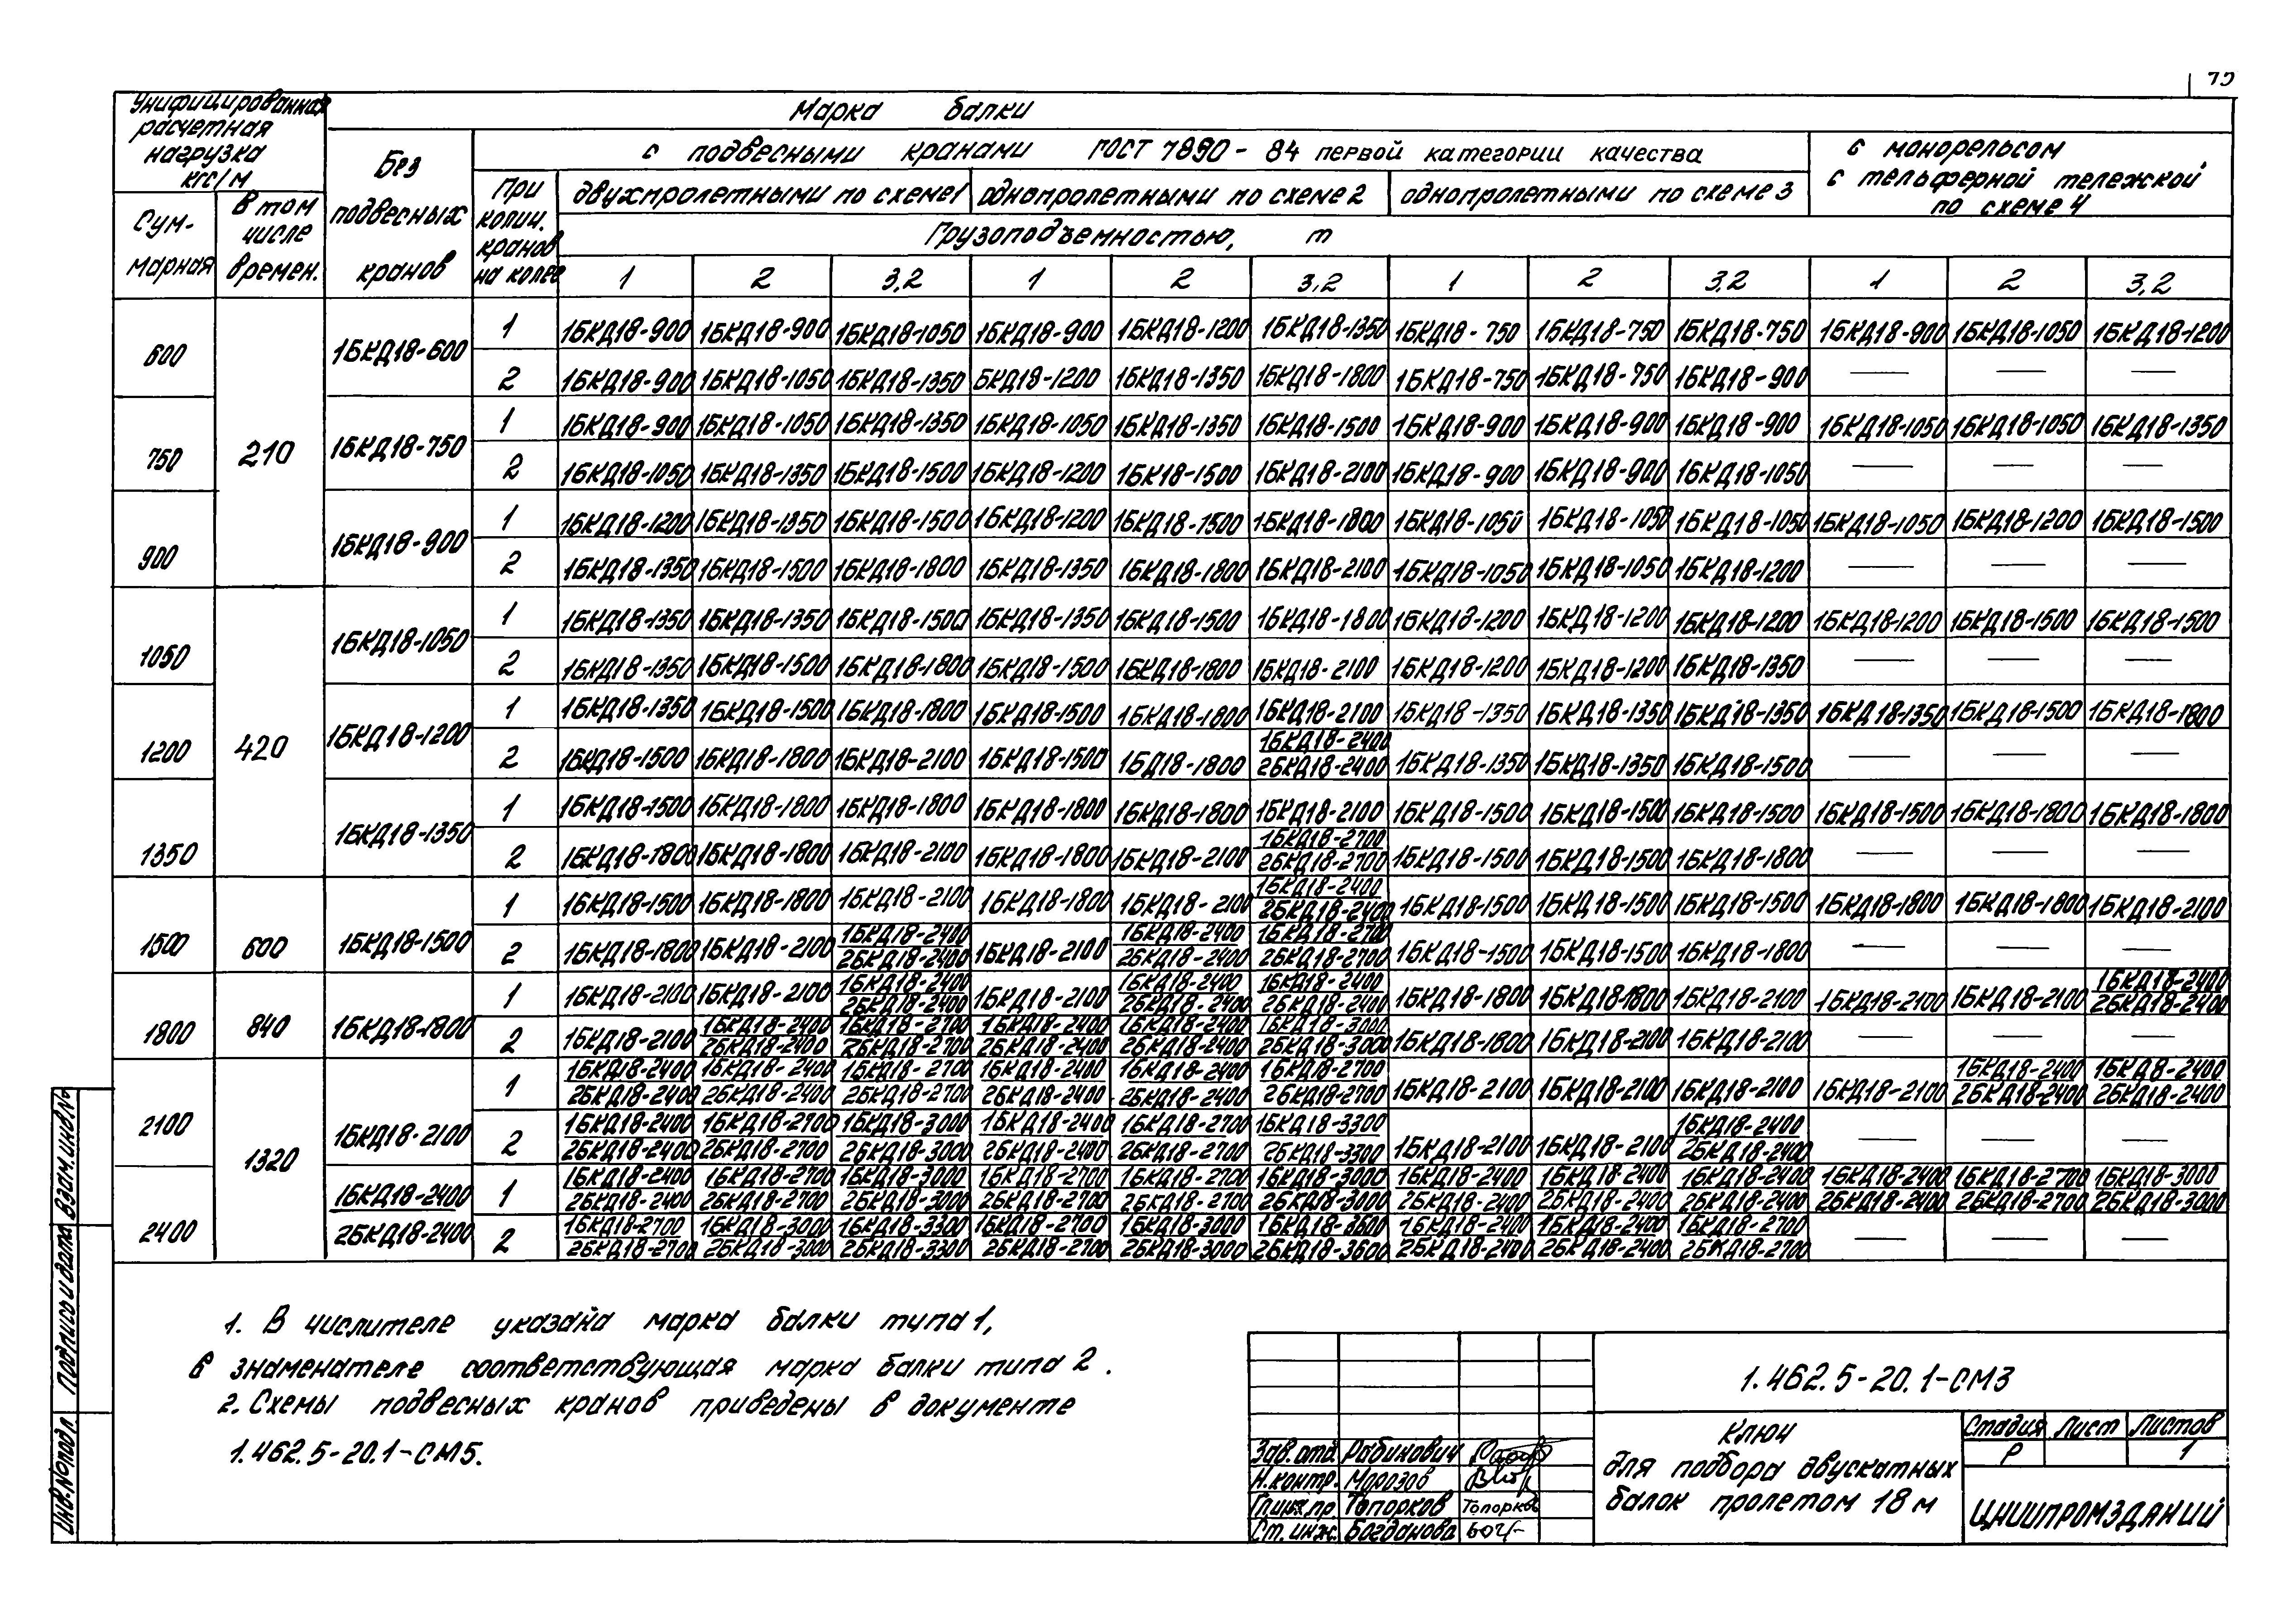 Унифицированная
расчетная
нагрузка
кгс/м
Сум-
марная
В том
числе
времен.
Без
подвесных
кранов
Марка балки
с подвесными кранами ГОСТ 7890-84 первой категории качества
При
колич.
кранов
на колее
двухпролетными по схеме 1
однопролетными по схеме 2
однопролетными по схеме 3
с монорельсом
с тельферной тележкой
по схеме 4
Грузоподъемностью, т
1 2 3,2 1 2 3,2 1 2 3,2 1 2 3,2
600 210 1БКД18-600
1 1БКД18-900 1БКД18-900 1БКД18-1050 1БКД18-900 1БКД18-1200 1БКД18-1350 1БКД18-750 1БКД18-750 1БКД18-750 1БКД18-900 1БКД18-1050 1БКД18-1200
2 1БКД18-900 1БКД18-1050 1БКД18-1350 БКД18-1200 1БКД18-1350 1БКД18-1800 1БКД18-750 1БКД18-750 1БКД18-900 — — —
750 1БКД18-750
1 1БКД18-900 1БКД18-1050 1БКД18-1350 1БКД18-1050 1БКД18-1350 1БКД18-1500 1БКД18-900 1БКД18-900 1БКД18-900 1БКД18-1050 1БКД18-1050 1БКД18-1350
2 1БКД18-1050 1БКД18-1350 1БКД18-1500 1БКД18-1200 1БК18-1500 1БКД18-2100 1БКД18-900 1БКД18-900 1БКД18-1050 — — —
900 1БКД18-900
1 1БКД18-1200 1БКД18-1350 1БКД18-1500 1БКД18-1200 1БКД18-1500 1БКД18-1800 1БКД18-1050 1БКД18-1050 1БКД18-1050 1БКД18-1050 1БКД18-1200 1БКД18-1500
2 1БКД18-1350 1БКД18-1500 1БКД18-1800 1БКД18-1350 1БКД18-1800 1БКД18-2100 1БКД18-1050 1БКД18-1050 1БКД18-1200 — — —
1050 420 1БКД18-1050
1 1БКД18-1350 1БКД18-1350 1БКД18-1500 1БКД18-1350 1БКД18-1500 1БКД18-1800 1БКД18-1200 1БКД18-1200 1БКД18-1200 1БКД18-1200 1БКД18-1500 1БКД18-1500
2 1БКД18-1350 1БКД18-1500 1БКД18-1800 1БКД18-1500 1БКД18-1800 1БКД18-2100 1БКД18-1200 1БКД18-1200 1БКД18-1350 — — —
1200 1БКД18-1200
1 1БКД18-1350 1БКД18-1500 1БКД18-1800 1БКД18-1500 1БКД18-1800 1БКД18-2100 1БКД18-1350 1БКД18-1350 1БКД18-1350 1БКД18-1350 1БКД18-1500 1БКД18-1800
2 1БКД18-1500 1БКД18-1800 1БКД18-2100 1БКД18-1500 1БД18-1800 1БКД18-2400/2БКД18-2400 1БКД18-1350 1БКД18-1350 1БКД18-1500 — — —
1350 1БКД18-1350
1 1БКД18-1500 1БКД18-1800 1БКД18-1800 1БКД18-1800 1БКД18-1800 1БКД18-2100 1БКД18-1500 1БКД18-1500 1БКД18-1500 1БКД18-1500 1БКД18-1800 1БКД18-1800
2 1БКД18-1800 1БКД18-1800 1БКД18-2100 1БКД18-1800 1БКД18-2100 1БКД18-2700/2БКД18-2700 1БКД18-1500 1БКД18-1500 1БКД18-1800 — — —
1500 600 1БКД18-1500
1 1БКД18-1500 1БКД18-1800 1БКД18-2100 1БКД18-1800 1БКД18-2100 1БКД18-2400/2БКД18-2400 1БКД18-1500 1БКД18-1500 1БКД18-1500 1БКД18-1800 1БКД18-1800 1БКД18-2100
2 1БКД18-1800 1БКД18-2100 1БКД18-2400/2БКД18-2400 1БКД18-2100 1БКД18-2400/2БКД18-2400 1БКД18-2700/2БКД18-2700 1БКД18-1500 1БКД18-1500 1БКД18-1800 — — —
1800 840 1БКД18-1800
1 1БКД18-2100 1БКД18-2100 1БКД18-2400/2БКД18-2400 1БКД18-2100 1БКД18-2400/2БКД18-2400 1БКД18-2400/2БКД18-2400 1БКД18-1800 1БКД18-1800 1БКД18-2100 1БКД18-2100 1БКД18-2100 1БКД18-2400/2БКД18-2400
2 1БКД18-2100 1БКД18-2400/2БКД18-2400 1БКД18-2700/2БКД18-2700 1БКД18-2400/2БКД18-2400 1БКД18-2400/2БКД18-2400 1БКД18-3000/2БКД18-3000 1БКД18-1800 1БКД18-2100 1БКД18-2100 — — —
2100 1320 1БКД18-2100
1 1БКД18-2400/2БКД18-2400 1БКД18-2400/2БКД18-2400 1БКД18-2700/2БКД18-2700 1БКД18-2400/2БКД18-2400 1БКД18-2400/2БКД18-2400 1БКД18-2700/2БКД18-2700 1БКД18-2100 1БКД18-2100 1БКД18-2100 1БКД18-2100 1БКД18-2400/2БКД18-2400 1БКД18-2400/2БКД18-2400
2 1БКД18-2400/2БКД18-2400 1БКД18-2700/2БКД18-2700 1БКД18-3000/2БКД18-3000 1БКД18-2400/2БКД18-2400 1БКД18-2700/2БКД18-2700 1БКД18-3300/2БКД18-3300 1БКД18-2100 1БКД18-2100 1БКД18-2400/2БКД18-2400 — — —
2400 1БКД18-2400/2БКД18-2400
1 1БКД18-2400/2БКД18-2400 1БКД18-2700/2БКД18-2700 1БКД18-3000/2БКД18-3000 1БКД18-2700/2БКД18-2700 1БКД18-2700/2БКД18-2700 1БКД18-3000/2БКД18-3000 1БКД18-2400/2БКД18-2400 1БКД18-2400/2БКД18-2400 1БКД18-2400/2БКД18-2400 1БКД18-2400/2БКД18-2400 1БКД18-2700/2БКД18-2700 1БКД18-3000/2БКД18-3000
2 1БКД18-2700/2БКД18-2700 1БКД18-3000/2БКД18-3000 1БКД18-3300/2БКД18-3300 1БКД18-2700/2БКД18-2700 1БКД18-3000/2БКД18-3000 1БКД18-3600/2БКД18-3600 1БКД18-2400/2БКД18-2400 1БКД18-2400/2БКД18-2400 1БКД18-2700/2БКД18-2700 — — —
1. В числителе указана марка балки типа 1,
в знаменателе соответствующая марка балки типа 2.
2. Схемы подвесных кранов приведены в документе
1.462.5-20.1-СМ5.
Взам.инв.№
Подпись и дата
Инв.№подл
1.462.5-20.1-СМ3
Зав.отд. Рабинович
Н.контр. Морозов
Гл.инж.пр. Топорков Топорков
Ст.инж. Богданова
Ключ
для подбора двускатных
балок пролетом 18 м
Стадия Лист Листов
Р 1
ЦНИИПРОМЗДАНИЙ